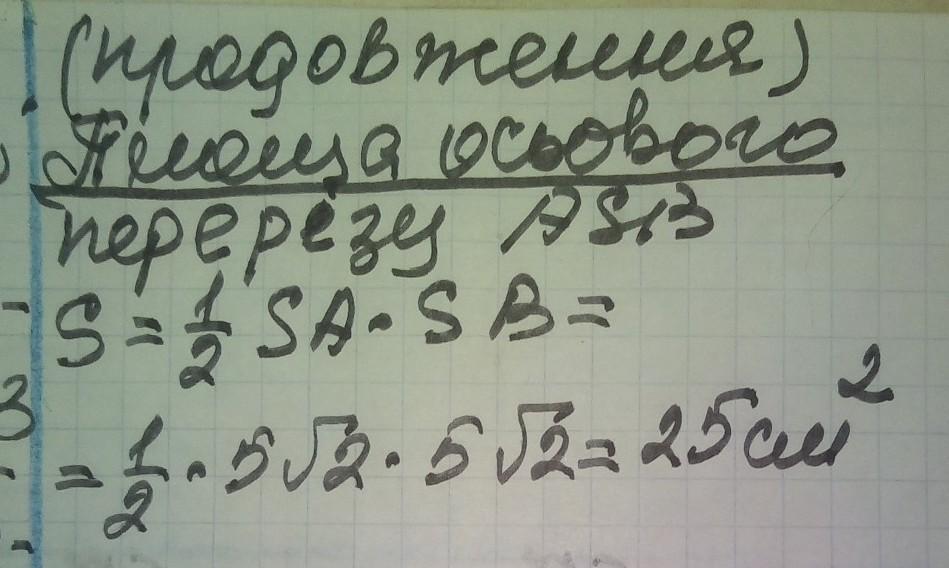 (продовження)
Площа осьового
перерізу ASB
S = 1/2 SA · SB =
= 1/2 · 5√2 · 5√2 = 25 см²